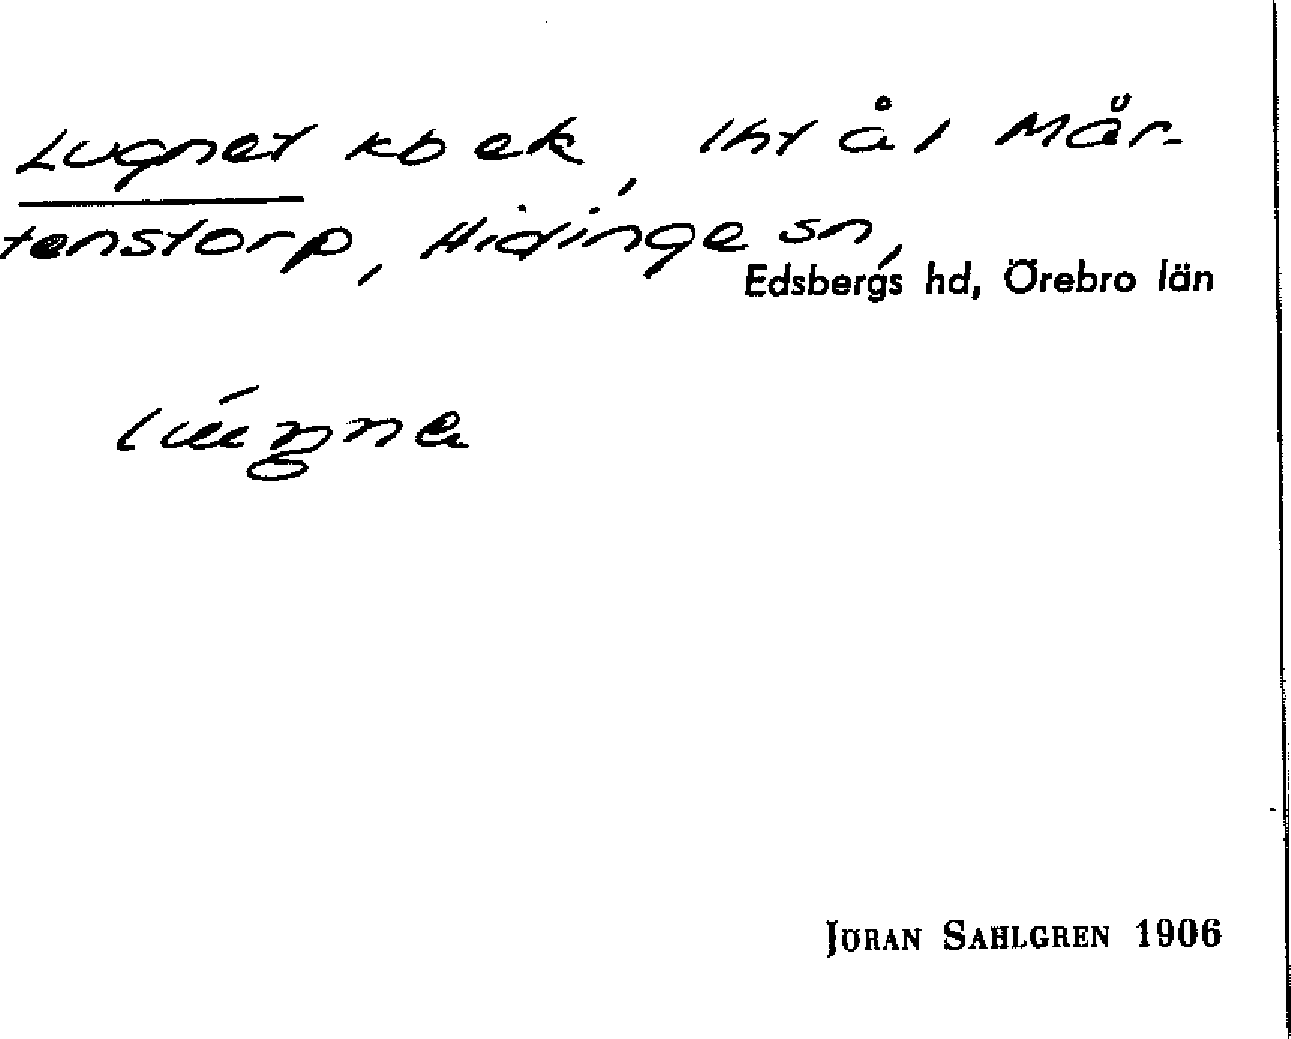 Lugnet kb ek, lht å 1 Mår-
tenstorp, Hidinge sn,
Edsbergs hd, Örebro län
JÖRAN SAHLGREN 1906